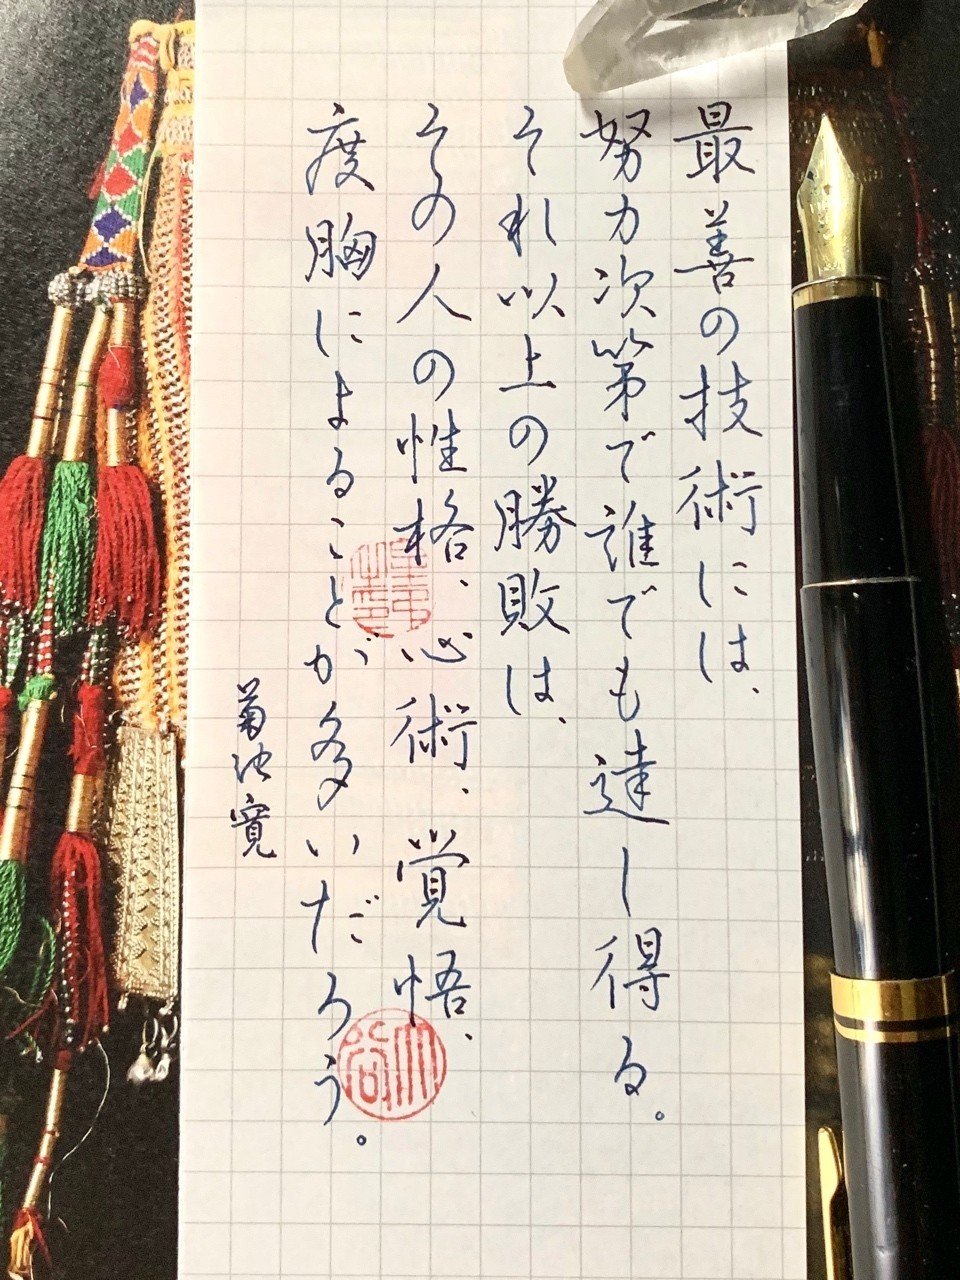 最善の技術には、
努力次第で誰でも達し得る。
それ以上の勝敗は、
その人の性格、心術、覚悟、
度胸によることが多いだろう。
菊池寛